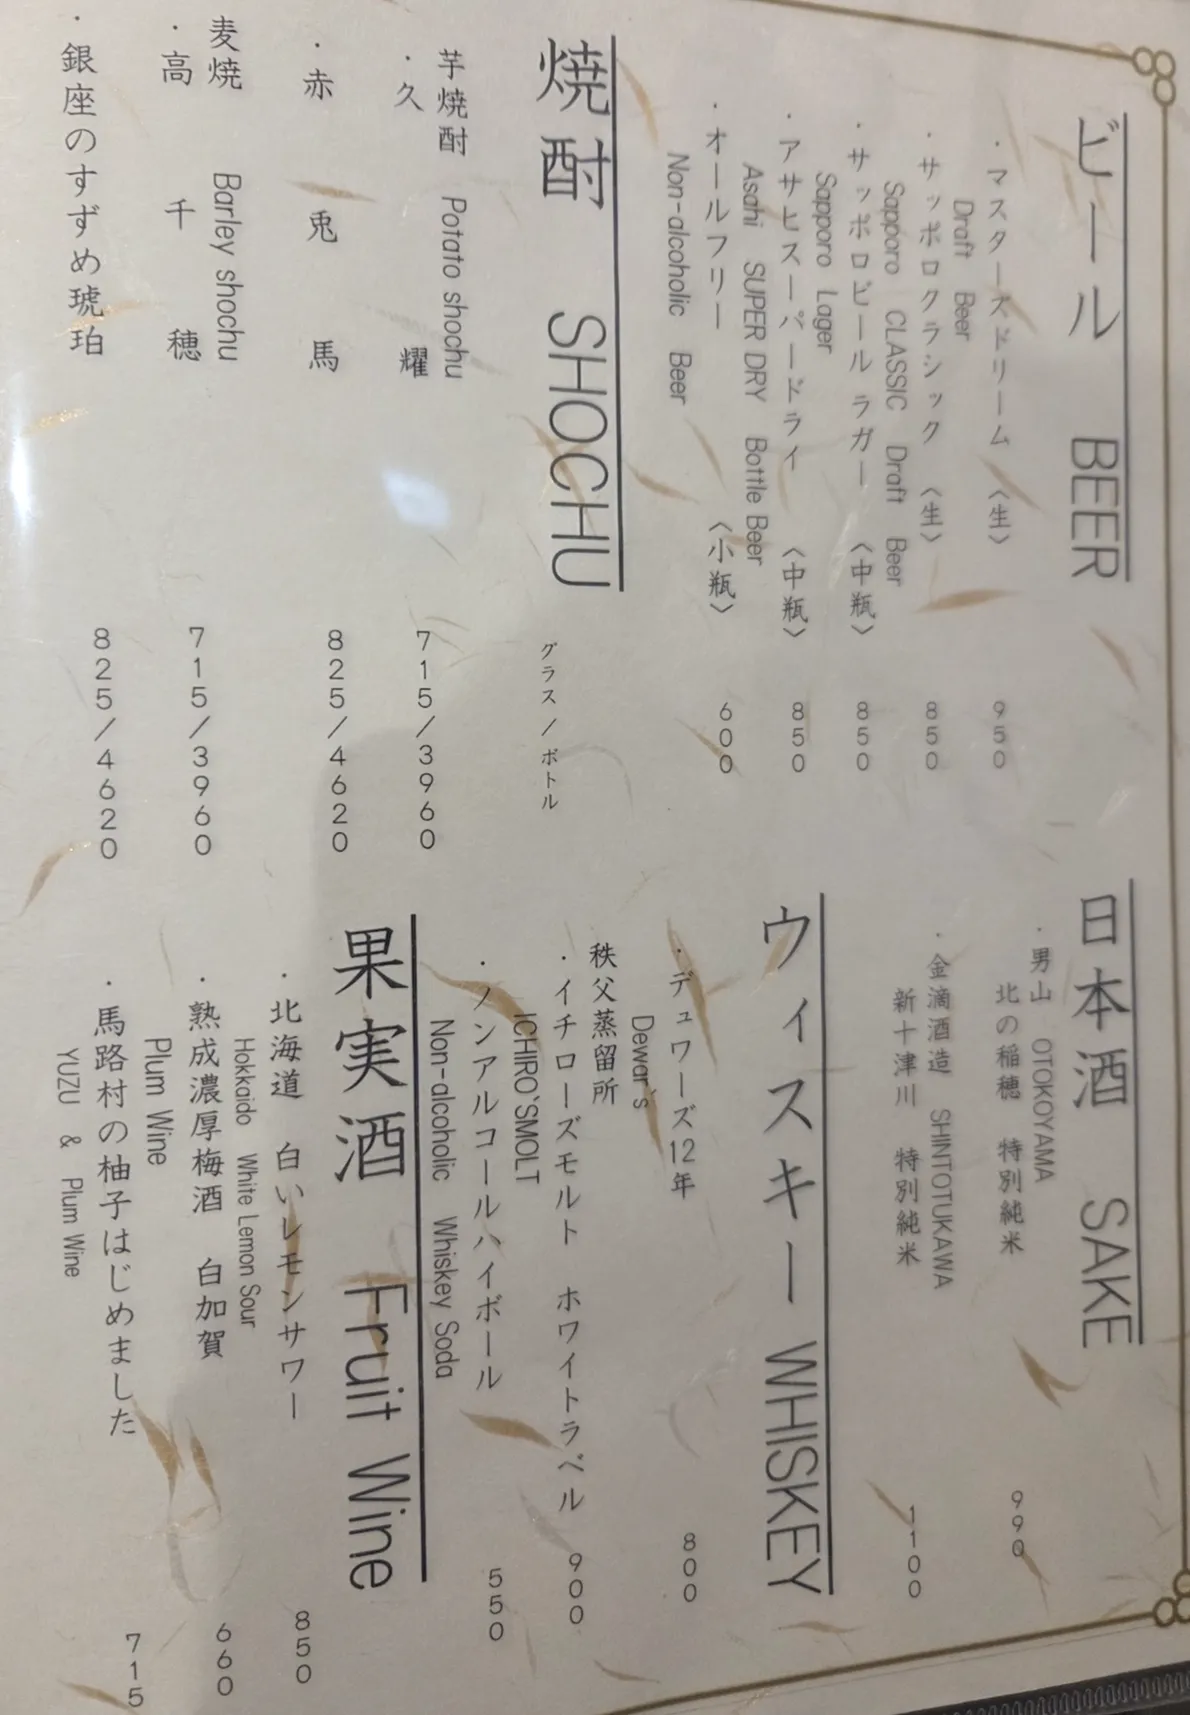 ビール BEER
・マスターズドリーム 〈生〉 950
Draft Beer
・サッポロクラシック 〈生〉 850
Sapporo CLASSIC Draft Beer
・サッポロビール ラガー 〈中瓶〉 850
Sapporo Lager
・アサヒスーパードライ 〈中瓶〉 850
Asahi SUPER DRY Bottle Beer
・オールフリー 〈小瓶〉 600
Non-alcoholic Beer
焼酎 SHOCHU グラス/ボトル
芋焼酎 Potato shochu
・久耀 715/3960
・赤兎馬 825/4620
麦焼 Barley shochu
・高千穂 715/3960
・銀座のすずめ琥珀 825/4620
日本酒 SAKE
・男山 OTOKOYAMA
北の稲穂 特別純米 990
・金滴酒造 SHINTOTUKAWA
新十津川 特別純米 1100
ウィスキー WHISKEY
・デュワーズ12年 800
Dewar's
秩父蒸留所
・イチローズモルト ホワイトラベル 900
ICHIRO'SMOLT
・ノンアルコールハイボール 550
Non-alcoholic Whiskey Soda
果実酒 Fruit Wine
・北海道 白いレモンサワー 850
Hokkaido White Lemon Sour
・熟成濃厚梅酒 白加賀 660
Plum Wine
・馬路村の柚子はじめました 715
YUZU & Plum Wine